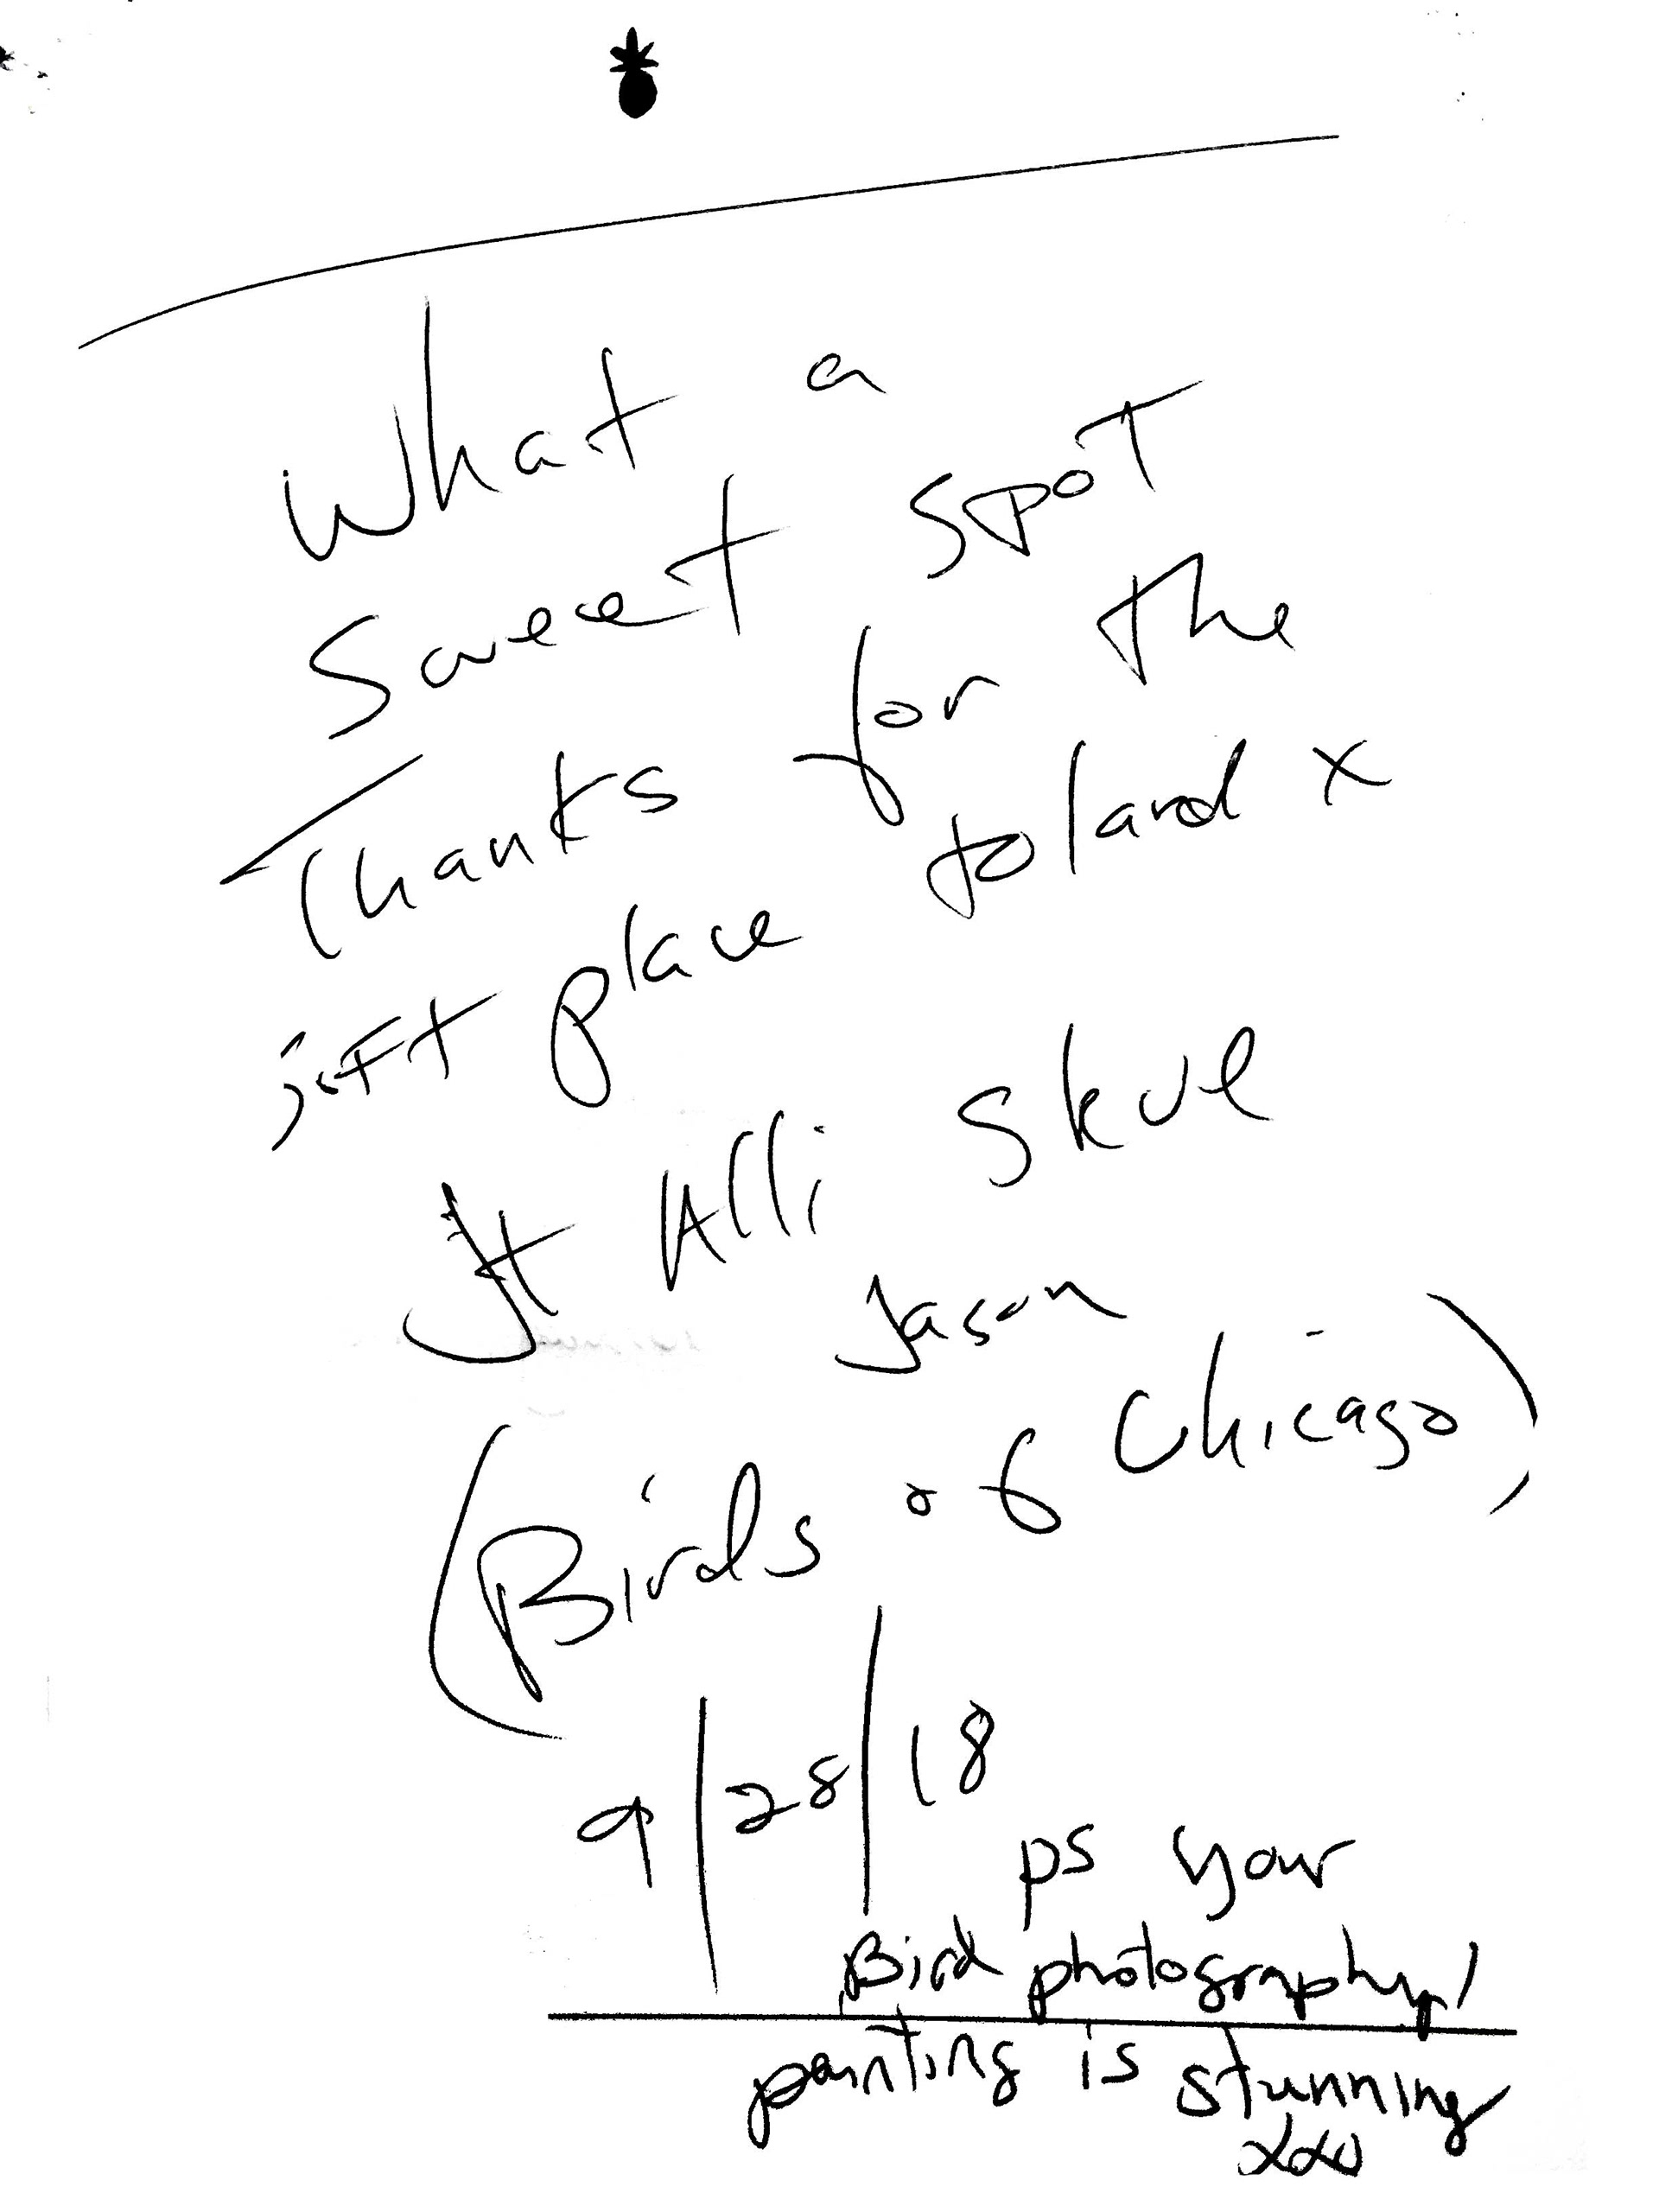 What a
Sweet spot
Thanks for the
place to land x
JT Alli Skye
Jason
(Birds of Chicago)
9/28/18
ps your
Bird photography/
painting is stunning
xoxo